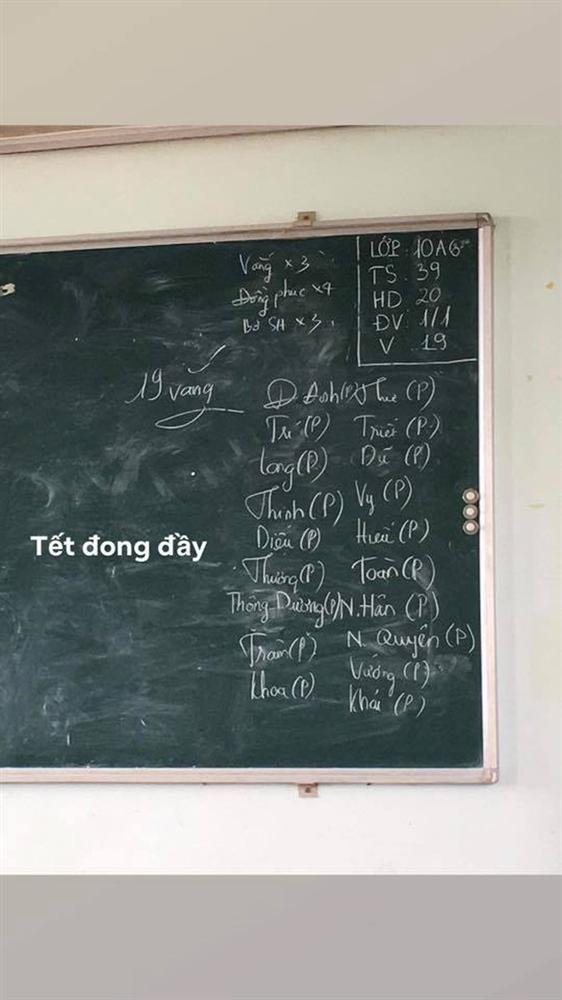 Vắng x 3
Đồng phục x4
Bơ SH x 3
LỚP: 10A6
TS: 39
HD: 20
ĐV: 1/1
V 19
19 vắng
Đ. Anh(P) Thư (P)
Trí (P) Triết (P)
Long(P) Dữ (P)
Thịnh (P) Vy (P)
Diệu (P) Hiếu (P)
Thương(P) Toàn(P)
Thông-Dương(P) N.Hân (P)
Trâm(P) N. Quyên (P)
Khoa(P) Vương (P)
Khải (P)
Tết đong đầy